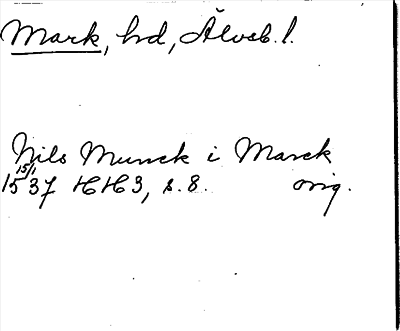 Mark, hd, Älvsb. l.
Nils Munck i Marck
15/1
1537 HH3, s. 8. orig.